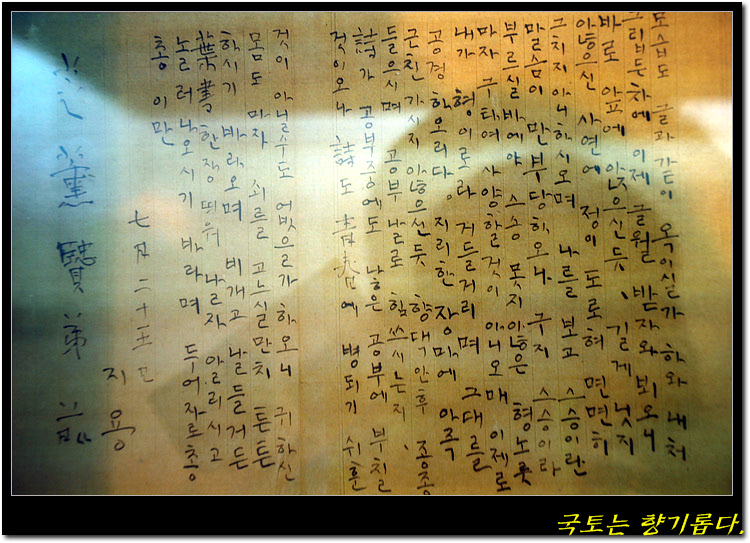 모습도 글과가티 옥이실가 하와 내처
그립든차에 이제 글월 받자와 뵈오니
바로 앞에 앉으신듯, 길게 닛지
않으신 사연에 정이 도로혀 면면히
그치지아니하시오며 나를 보고 스승이란
말슴이 만부당하오나 구지 스승이라
부르실바에야 스승 못지않은 형노릇
마자 구타여 사양할것이 아니오매 이제로
내가 형이로라 거들거리며 그대를
공경하오리다. 지리한 장마에 아즉
근친가시지 않으신듯 향댁안후, 종종
들으시며 공부 날로 힘쓰시는지
詩가 공부중에도 낳은 공부에 부칠
것이오나 詩도 靑春에 병되기 쉬훈
것이 아닐수도 어벗으쓸가 하오니 귀하신
몸도 마자 쇠를 고느실만치 튼튼
하시기 바라오며 비개고 날들거든
葉書한장 띄워 날자 알리시고
놀러나오시기 바라며 두어자로 총
총 이만
七月二十五日
지용
芝薰賢弟
국토는 향기롭다.